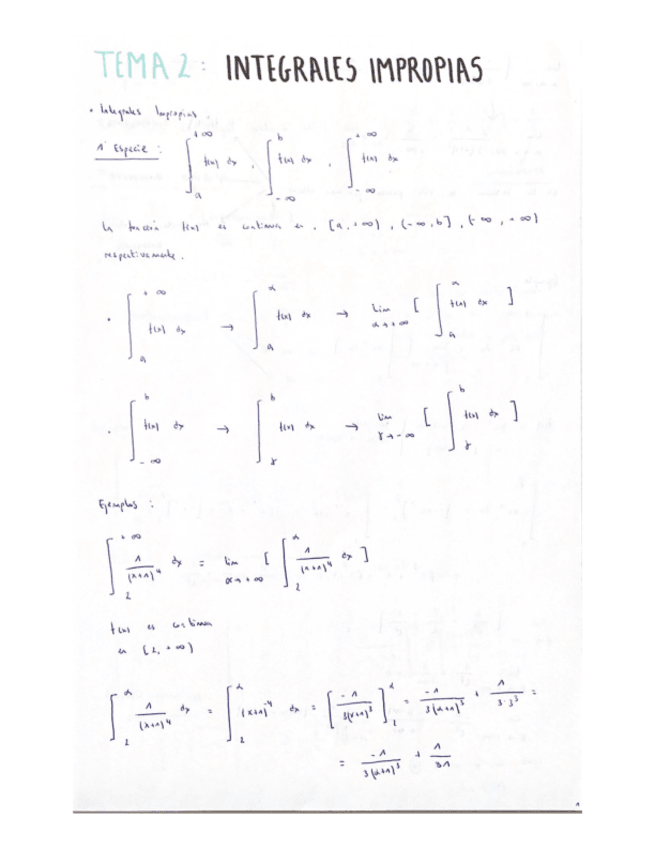 TEMA 2: INTEGRALES IMPROPIAS
• Integrales Impropias
1ª Especie: ∫_a^{+∞} f(x) dx, ∫_{-∞}^b f(x) dx, ∫_{-∞}^{+∞} f(x) dx
La función f(x) es continua en, [a, +∞), (-∞, b], (-∞, +∞)
respectivamente.
• ∫_a^{+∞} f(x) dx → ∫_a^α f(x) dx → lim_{α→+∞} [ ∫_a^α f(x) dx ]
• ∫_{-∞}^b f(x) dx → ∫_γ^b f(x) dx → lim_{γ→-∞} [ ∫_γ^b f(x) dx ]
Ejemplos:
∫_2^{+∞} 1/(x+1)^4 dx = lim_{α→+∞} [ ∫_2^α 1/(x+1)^4 dx ]
f(x) es continua
en [2, +∞)
∫_2^α 1/(x+1)^4 dx = ∫_2^α (x+1)^{-4} dx = [ -1/3(x+1)^3 ]_2^α = -1/3(α+1)^3 + 1/3·3^3 =
= -1/3(α+1)^3 + 1/81
1